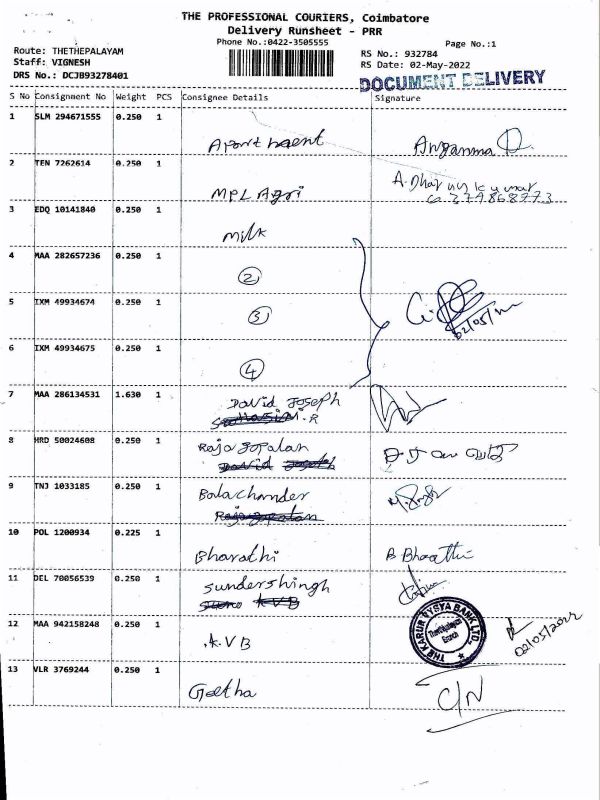 THE PROFESSIONAL COURIERS, Coimbatore
Delivery Runsheet - PRR
Phone No.:0422-3505555
Page No.:1
Route: THETHEPALAYAM
Staff: VIGNESH
DRS No.: DCJB93278401
RS No.: 932784
RS Date: 02-May-2022
DOCUMENT DELIVERY
S No Consignment No Weight PCS Consignee Details Signature
1 SLM 294671555 0.250 1
Apartment
2 TEN 7262614 0.250 1
MPL Agri
3 EDQ 10141840 0.250 1
Milk
4 MAA 282657236 0.250 1
2
5 IXM 49934674 0.250 1
3
02/05/22
6 IXM 49934675 0.250 1
4
7 MAA 286134531 1.630 1
David Joseph
8 HRD 50024608 0.250 1
Rajagopalan
David Joseph
9 TNJ 1033185 0.250 1
Balachander
Rajagopalan
10 POL 1200934 0.225 1
Bharathi B Bharathi
11 DEL 70056539 0.250 1
Sundershingh
KVB
12 MAA 942158248 0.250 1
KVB
THE KARUR VYSYA BANK LTD.
Thethepalayam
Branch
02/05/2022
13 VLR 3769244 0.250 1
Geetha C/N